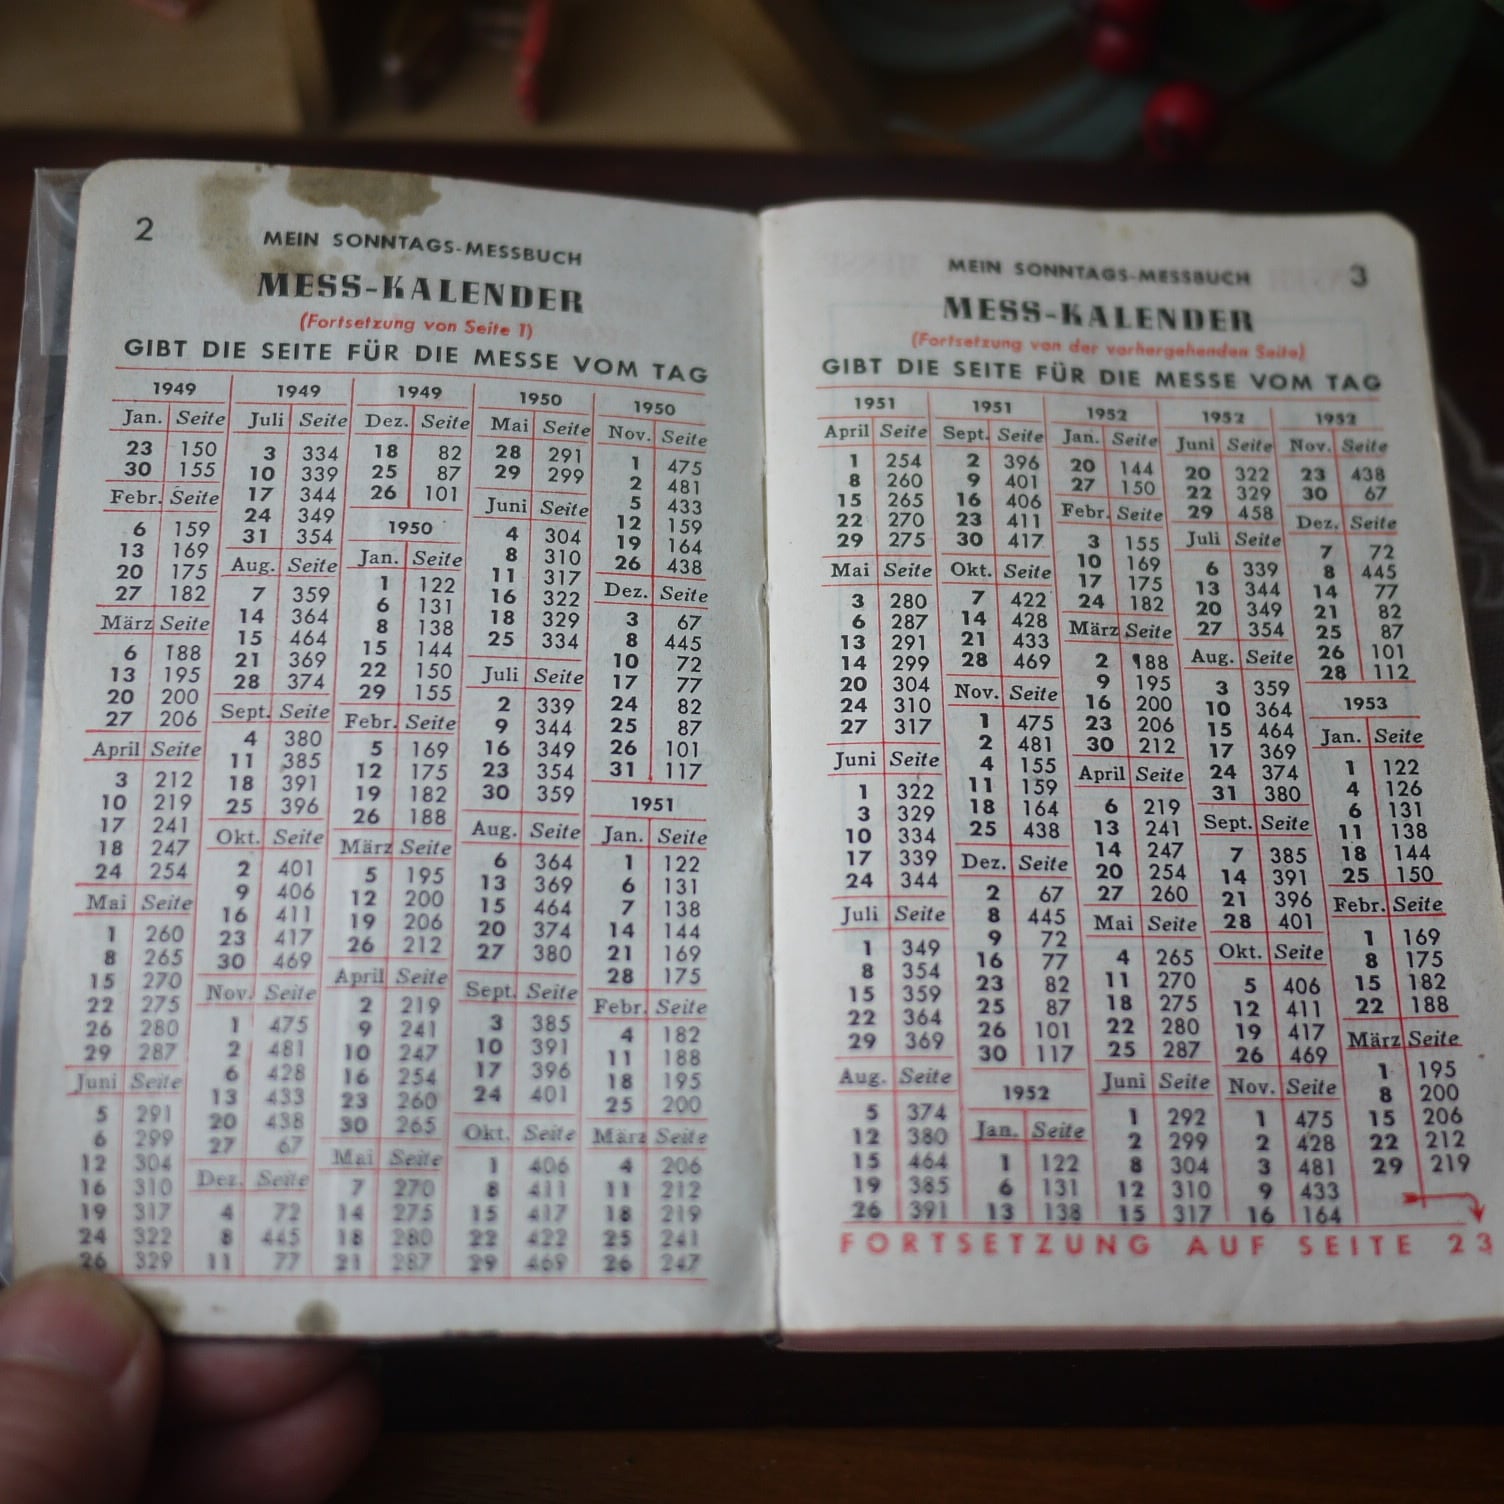 2
MEIN SONNTAGS-MESSBUCH
MESS-KALENDER
(Fortsetzung von Seite 1)
GIBT DIE SEITE FÜR DIE MESSE VOM TAG
1949
Jan. Seite
23 150
30 155
Febr. Seite
6 159
13 169
20 175
27 182
März Seite
6 188
13 195
20 200
27 206
April Seite
3 212
10 219
17 241
18 247
24 254
Mai Seite
1 260
8 265
15 270
22 275
26 280
29 287
Juni Seite
5 291
6 299
12 304
16 310
19 317
24 322
26 329
1949
Juli Seite
3 334
10 339
17 344
24 349
31 354
Aug. Seite
7 359
14 364
15 464
21 369
28 374
Sept. Seite
4 380
11 385
18 391
25 396
Okt. Seite
2 401
9 406
16 411
23 417
30 469
Nov. Seite
1 475
2 481
6 428
13 433
20 438
27 67
Dez. Seite
4 72
8 445
11 77
1949
Dez. Seite
18 82
25 87
26 101
1950
Jan. Seite
1 122
6 131
8 138
15 144
22 150
29 155
Febr. Seite
5 169
12 175
19 182
26 188
März Seite
5 195
12 200
19 206
26 212
April Seite
2 219
9 241
10 247
16 254
23 260
30 265
Mai Seite
7 270
14 275
18 280
21 287
1950
Mai Seite
28 291
29 299
Juni Seite
4 304
8 310
11 317
16 322
18 329
25 334
Juli Seite
2 339
9 344
16 349
23 354
30 359
Aug. Seite
6 364
13 369
15 464
20 374
27 380
Sept. Seite
3 385
10 391
17 396
24 401
Okt. Seite
1 406
8 411
15 417
22 422
29 469
1950
Nov. Seite
1 475
2 481
5 433
12 159
19 164
26 438
Dez. Seite
3 67
8 445
10 72
17 77
24 82
25 87
26 101
31 117
1951
Jan. Seite
1 122
6 131
7 138
14 144
21 169
28 175
Febr. Seite
4 182
11 188
18 195
25 200
März Seite
4 206
11 212
18 219
25 241
26 247
MEIN SONNTAGS-MESSBUCH
3
MESS-KALENDER
(Fortsetzung von der vorhergehenden Seite)
GIBT DIE SEITE FÜR DIE MESSE VOM TAG
1951
April Seite
1 254
8 260
15 265
22 270
29 275
Mai Seite
3 280
6 287
13 291
14 299
20 304
24 310
27 317
Juni Seite
1 322
3 329
10 334
17 339
24 344
Juli Seite
1 349
8 354
15 359
22 364
29 369
Aug. Seite
5 374
12 380
15 464
19 385
26 391
1951
Sept. Seite
2 396
9 401
16 406
23 411
30 417
Okt. Seite
7 422
14 428
21 433
28 469
Nov. Seite
1 475
2 481
4 155
11 159
18 164
25 438
Dez. Seite
2 67
8 445
9 72
16 77
23 82
25 87
26 101
30 117
1952
Jan. Seite
1 122
6 131
13 138
1952
Jan. Seite
20 144
27 150
Febr. Seite
3 155
10 169
17 175
24 182
März Seite
2 188
9 195
16 200
23 206
30 212
April Seite
6 219
13 241
14 247
20 254
27 260
Mai Seite
4 265
11 270
18 275
22 280
25 287
Juni Seite
1 292
2 299
8 304
12 310
15 317
1952
Juni Seite
20 322
22 329
29 458
Juli Seite
6 339
13 344
20 349
27 354
Aug. Seite
3 359
10 364
15 464
17 369
24 374
31 380
Sept. Seite
7 385
14 391
21 396
28 401
Okt. Seite
5 406
12 411
19 417
26 469
Nov. Seite
1 475
2 428
3 481
9 433
16 164
1952
Nov. Seite
23 438
30 67
Dez. Seite
7 72
8 445
14 77
21 82
25 87
26 101
28 112
1953
Jan. Seite
1 122
4 126
6 131
11 138
18 144
25 150
Febr. Seite
1 169
8 175
15 182
22 188
März Seite
1 195
8 200
15 206
22 212
29 219
FORTSETZUNG AUF SEITE 23